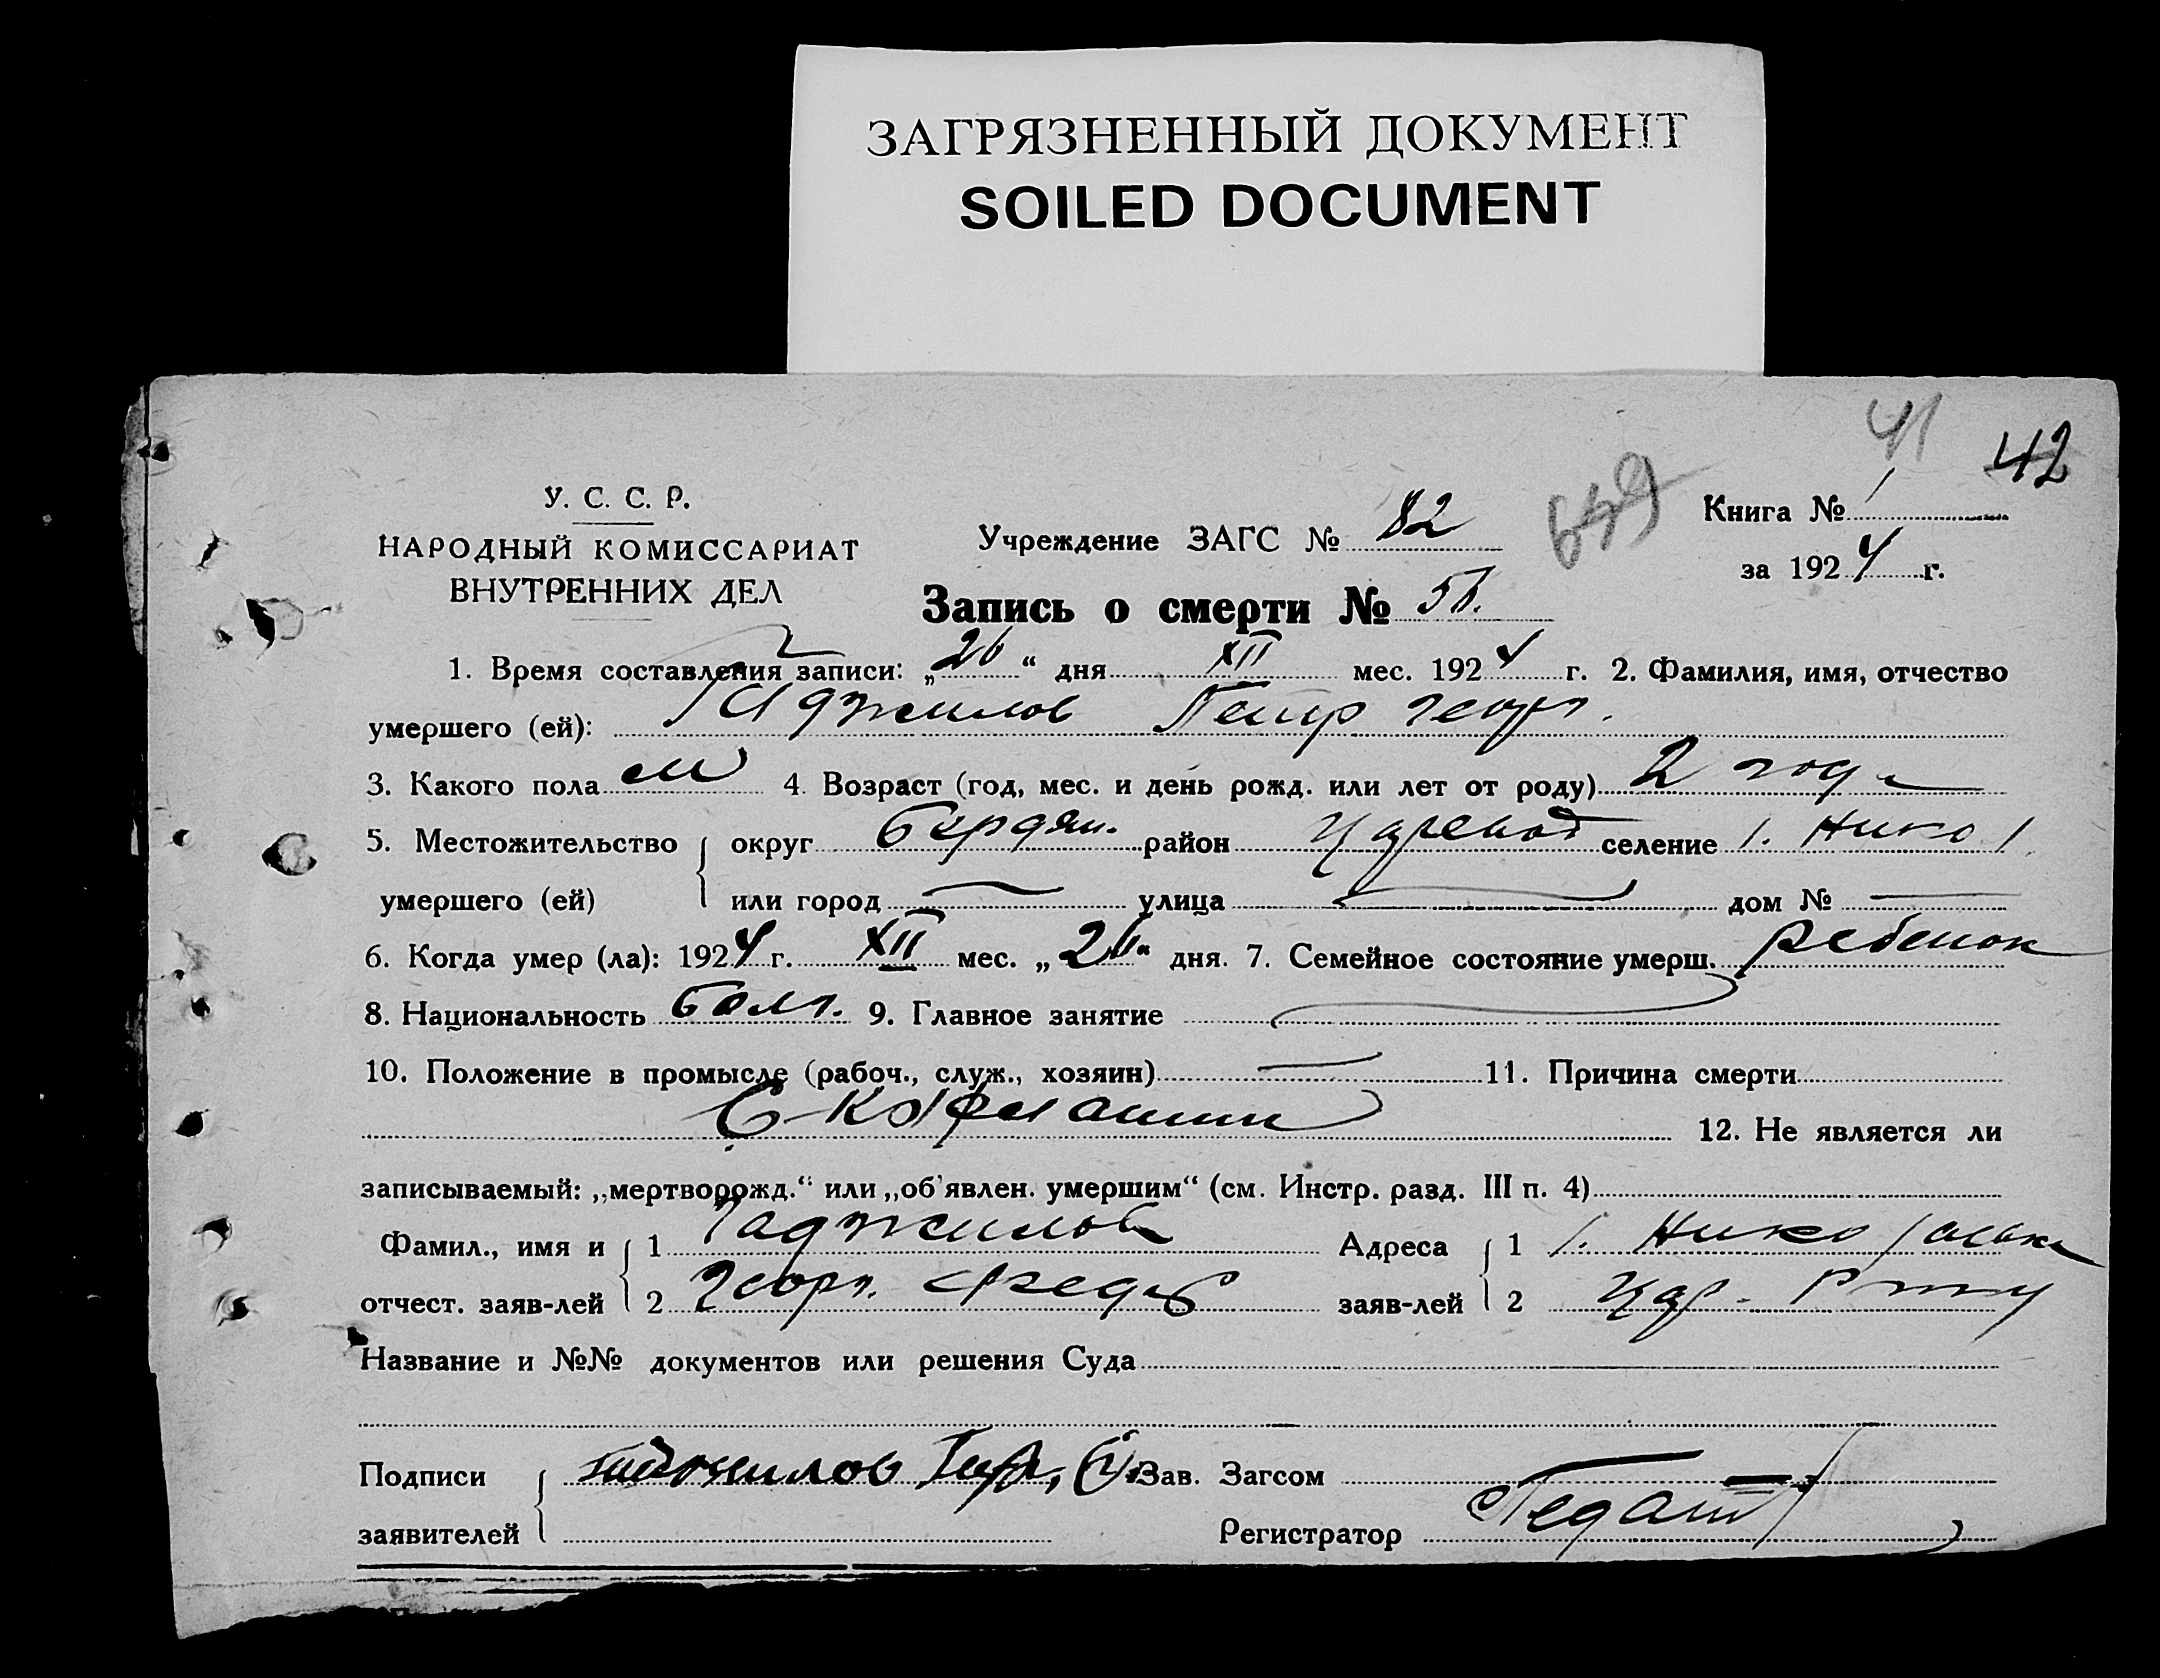 ЗАГРЯЗНЕННЫЙ ДОКУМЕНТ
SOILED DOCUMENT
41 42
У. С. С. Р.
НАРОДНЫЙ КОМИССАРИАТ
ВНУТРЕННИХ ДЕЛ
Учреждение ЗАГС № 82
659
Книга № 1
за 1924 г.
Запись о смерти №
1. Время составления записи: „26“ дня XII мес. 1924 г. 2. Фамилия, имя, отчество
умершего (ей): Гаджилов Петр Георг.
3. Какого пола м 4. Возраст (год, мес. и день рожд. или лет от роду) 2 года
5. Местожительство округ Бердян. район Царевод селение
умершего (ей) или город — улица — дом № —
6. Когда умер (ла): 1924 г. XII мес. „26“ дня. 7. Семейное состояние умерш. ребенок
8. Национальность болг. 9. Главное занятие —
10. Положение в промысле (рабоч., служ., хозяин) — 11. Причина смерти
Скарлатин 12. Не является ли
записываемый: „мертворожд.“ или „об'явлен. умершим“ (см. Инстр. разд. III п. 4)
Фамил., имя и 1 Гаджилов Адреса 1
отчест. заяв-лей 2 Георг. заяв-лей 2 Цар.
Название и №№ документов или решения Суда
Подписи Гаджилов Зав. Загсом
заявителей Регистратор